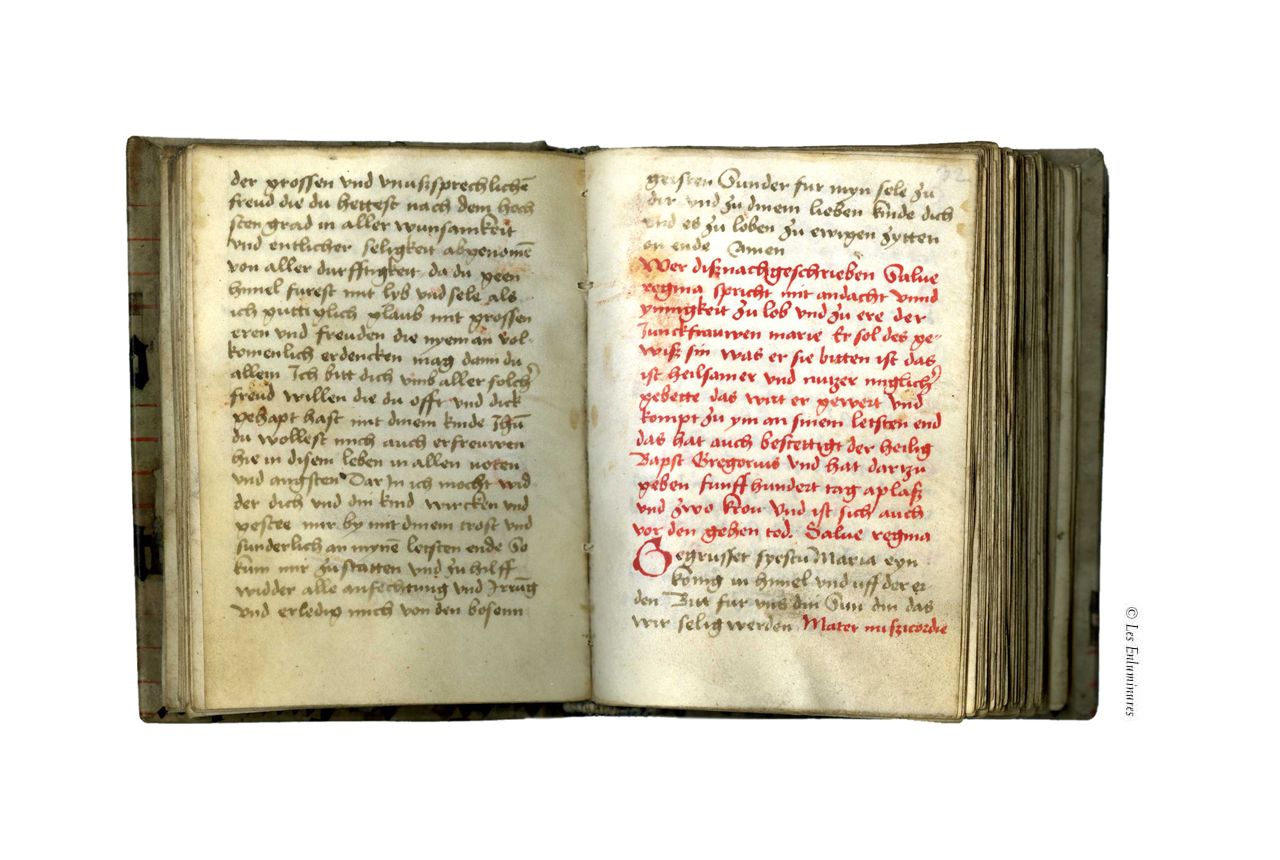 der grossen vnd vnußsprechlichē
freud die du hettest nach dem hoch
sten grad in aller wunsamkeit
vnd entlicher seligkeit abgenomē
von aller durfftigkeit da du geen
himel furest mit lyb vnd sele als
ich guttiglich glaub mit grossen
eren vnd freuden die nyeman vol-
komenlich erdencken mag dann du
allein Ich bitt dich vmb aller solch
freud willen die du offt vnd dick
gehapt hast mit dinem kinde Jhū
du wollest mich auch erfreuwen
hie in disem leben in allen noten
vnd angsten Dar In ich mocht wid
der dich vnd din kind wircken vnd
gestee mir by mit dinem trost vnd
sunderlich an mynē letsten ende So
kum mir zu statten vnd zu hilff
widder alle anfechtung vnd Irrūg
vnd erledig mich von den bosenn
32
geisten Sunder fur myn sele zu
dir vnd zu dinem lieben kinde dich
vnd es zu loben zu ewigen zytten
on ende Amen
Wer dißnachgeschrieben Salue
regina spricht mit andacht vnnd
ynnigkeit zu lob vnd zu ere der
Junckfrauwen marie Er sol des ge-
wiß sin was er sie bitten ist das
ist heilsamer vnd nutzer muglich
gebette das wirt er gewert vnd
kompt zu ym an sinem letsten end
das hat auch bestettigt der heilig
Bapst Gregorius vnd hat dartzu
geben funff hundert tag aplaß
vnd zwo kron vnd ist sich auch
vor den gehen tod. Salue regina
Gegrusset syestu Maria eyn
konig in himel vnd vff der er
den Bitt fur vns din Sun din das
wir selig werden Mater miszicordie
© Les Enluminures